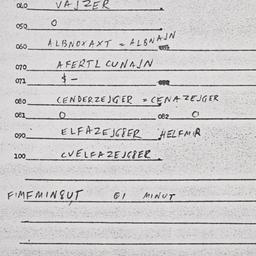 040 VAJZER
050 0
060 ALBNOXAXT = ALBNAJN
070 AFERTL CUNAJN
071 $ -
080 CENDERZEJGER = CENAZEJGER
081 0 082 0
090 ELFAZEJGER HELFMIR
100 CVELFAZEJGER
FIMFMINGUT EI MINUT